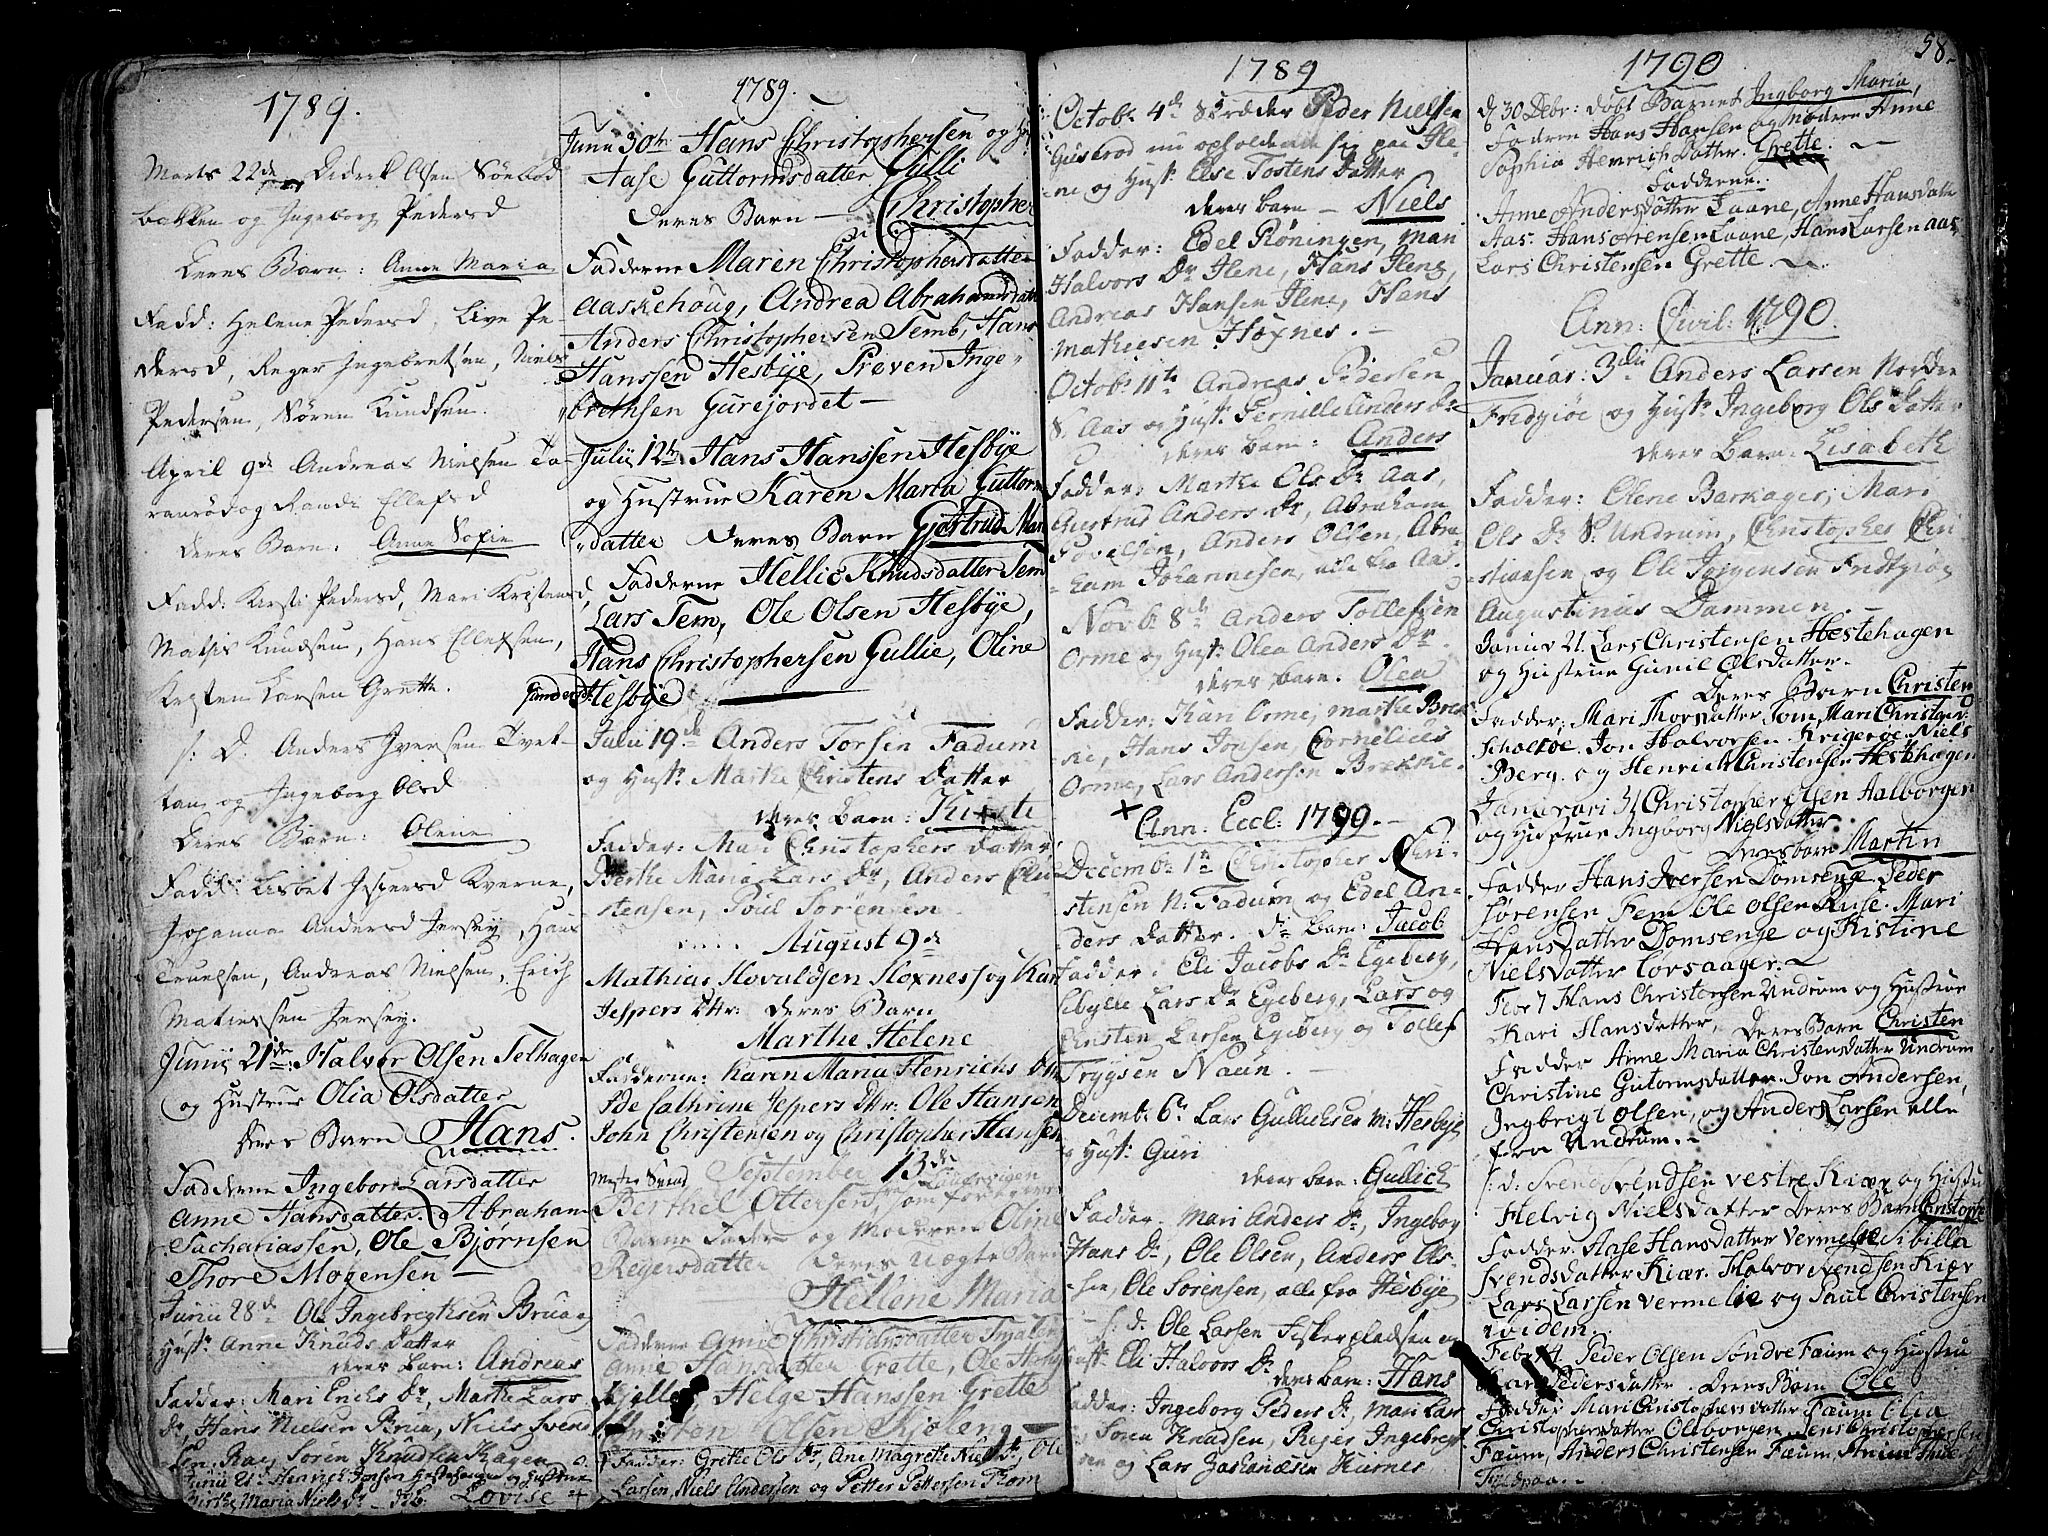 1789.
Marts 22de Didrik Olsen Sönböd
bakken og Ingeborg Pedersd
deres Barn: Anne Maria
Fadd: Helene Pedersd, Live Pe
dersd, Reger Ingebretsen, Niels
Pedersen, Sören Knudsen.
April 9de Andreas Nielsen Ta
ranrödog Randi Ellefsd
deres Barn: Anne Sofie
Fadd: Kirsti Pedersd, Mari Kristensd,
Mathis Knudsen, Hans Ellefsen,
Larsen Grette.
s: D. Anders Iversen Tvet-
tan og Ingeborg Olsd
Deres Barn: Olene
Fadd: Lisbet Jespersd Kverne,
Johanna Andersd Jersey, Hans
Truelsen, Andreas Nielsen, Erich
Matiessen Jersey.
Junij 21de: Halvor Olsen Selhagen
og Hustrue Olia Olsdatter
deres Barn Hans.
Fadderne Ingebor Larsdatter
Anne Hansdatter. og Abraham
Sachariassen, Ole Bjørnsen
Thore Mogensen —
Junii 28de Ole Ingebrigtsen Brua og
Hustr: Anne Knuds Datter
deres barn: Andreas
Fadder: Mari Erichs Dr, Marthe Lars
Dr, Hans Nielsen Brua, Niels Svend
sen, Rae, Sören Knudsen Hagen
Junii d. Henrich Jonsen Hestehagen og Hustrue
Birthe Maria Niels Dr - Lovise +
1789.
Junii 30te Hans Christophersen og Hu
Aase Guttormsdatter Gulli
Deres Barn — Christopher
Fadderne Maren Christophersdatter
Aaskehoug, Andrea Abrahamsdatter
Anders Christophersen Temb, Hans
Hanssen Hesbye, Preven Inge
brethsen Gurejordet —
Julij 12te Hans Hanssen Hesbye
og Hustrue Karen Maria Guttorm
datter Deres Barn Gjertrud Mari
Fadderne Hellie Knudsdatter Tem
Lars Tem, Ole Olsen Hesbye,
Hans Christophersen Gullie, Oline
Gundersd: Hesbye
Julii 19de Anders Torsen Fadum
og Hustr: Marthe Christens Datter
deres Barn: Kirste
Fadder: Mari Christophers datter,
Berthe Maria Lars Dr, Anders Chri
stensen, Poul Sørensen
August 9de
Mathias Hovaldsen Hoxness og Kari
Jespers Dttr: Deres Barn
Marthe Helene
Fadderne: Karen Maria Henrichs Dttr
Ide Cathrine Jespers Dttr: Ole Hansen
John Christensen og Christopher Hansen
September 13de
Berthel Ottersen, som
Barne Fader og Moderen Oline
Reyersdatter deres uægte Barn
Hellene Maria
Fadderne Anne Christiansdatter
Anne Hansdatter Grette, Ole
Helge Hanssen Grette
Olsen Kjølerg —
Fadder: Grethe Ols Dr, Ane Magrethe Niels Dr, Ole
Larsen, Niels Andersen og Petter Pettersen Thom
1789
Octob: 4de Skræder Peder Nielsen
Gusrod nu opholdende sig paa Ile-
ne og Hust: Else Tostens Datter
deres barn — Niels
Fadder: Edel Röningen, Mari
Halvors Dr Ilene, Hans Ilene,
Andreas Hansen Ilene, Hans
Mathiesen Hoxnes. —
Octob: 11te Andreas Pedersen
S. Aas og Hust: Pernille Anders Dr
deres barn: Anders
Fadder: Marthe Ols Dr Aas,
Giertrud Anders Dr, Abraham
Povelsen, Anders Olsen, Abra-
ham Johannesen, alle fra Aas.
Novb: 8de Anders Tollefsen
Orme og Hust: Olea Anders Dr.
deres barn. Olea
Fadder: Kari Orme, Marthe Brek
ke, Hans Jonsen, Cornelius
Orme, Lars Andersen Brekkie.
+ Ann: Eccl: 1790. —
Decemb: 1te Christopher Chri-
stensen N: Fadum og Edel An-
ders datter. Ds barn: Jacob
Fadder: Eli Jacobs Dr Egeberg,
Sibylle Lars Dr Egeberg, Lars og
Christen Larsen Egeberg og Tollef
Trygsen Naun. —
Decemb: 6te Lars Gullichsen M: Hesbye
og Hust: Guri
deres barn: Gullich
Fadder: Mari Anders Dr, Ingebor
Hans Dr, Ole Olsen, Anders Ols
sen, Ole Sørensen, alle fra Hesbye
s: d: Ole Larsen Fiskerpladsen og
Hust: Eli Halvors Dr
deres barn: Hans
Fadder: Ingeborg Peders Dr, Mari Lars
Dr Soren Knudsen, Rejer Ingebret
sen og Lars Zachariæsen Hurnes
1790
58.
d 30 Debr: döbt Barnet Ingborg Maria,
Fadren Hans Hansen og Modern Anne
Sophia Henrich Datter. Grette. —
Fadderne.
Anne Andersdatter Laane, Anne Hansdatte
Aas. Hans Sørensen Laane, Hans Larsen aas,
Lars Christensen Grette.
Ann: Civil: 1790.
Januar: 3die Anders Larsen Nordre
Fredgiöe og Hust: Ingeborg Ols datter
deres barn: Lisabeth
Fadder: Olene Barkager, Mari
Ols Dr S: Undrum, Christopher Chri-
stiansen og Ole Jörgensen Fredgiöe
Augustinus Dammen. —
Januar 21. Lars Christensen Hestehagen
og Hustrue Gunil Olsdatter.
Deres Barn Christen
Fadder: Mari Thorsdatter Tom, Mari Christopher:
Jon Halvorsen. Krigeröe. Niels
Berg. og Henrich Christensen Hestehagen
Januari 31 Christopher Olsen Aalborgen
og Hustrue Ingborg Nielsdatter
deres barn Martin
Fadder Hans Iversen Domsenge. Peder
Sørensen Fem Ole Olsen Ruse. Mari
Hansdatter Domsenge og Kistine
Nielsdatter Corsaager. —
Febr 7 Hans Christensen Undrum og Hustrue
Kari Hansdatter, Deres Barn Christen
Fadder Anne Maria Christensdatter Undrum
Christine Gutormsdatter. Jon Andersen,
Ingbrigt Olsen, og Anders Larsen alle
fra Undrum. —
s: d: Svend Svendsen vestre Kiær og Hustru
Helvig Nielsdatter Deres Barn Christopher
Fadder: Aase Hansdatter Vermelie Sibilla
Svendsdatter Kiær. Halvor Svendsen Kiær
Lars Larsen Vermelie og Paul Christensen
ibidem.
Febr 14 Peder Olsen Søndre Faum og Hustru
Pedersdatter. Deres Barn Ole
Fadder Mari Christophersdatter Faum Olia
Christophersdatter Olborgen Jens Christophersen
Faum, Anders Christensen Faum,